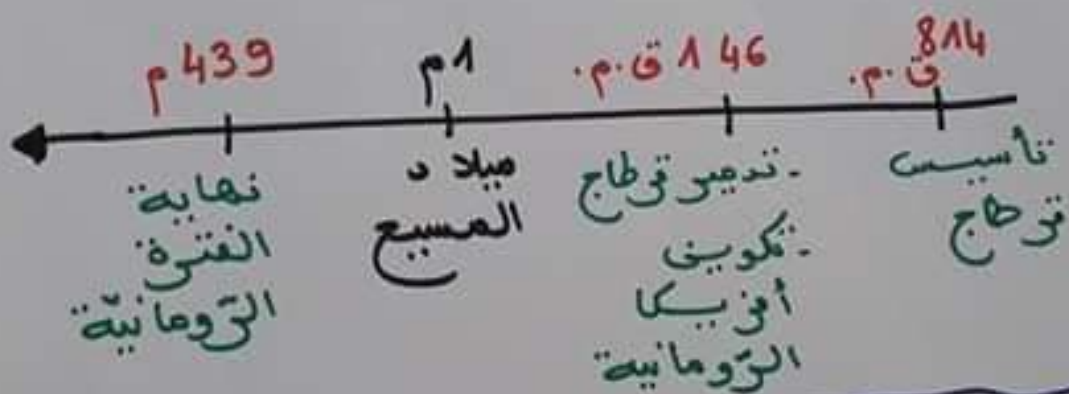 814
ق.م.
146 ق.م.
1م
439 م
تأسيس
قرطاج
- تدمير قرطاج
- تكوين
أفريكا
الرّومانية
ميلاد
المسيح
نهاية
الفترة
الرّومانيّة